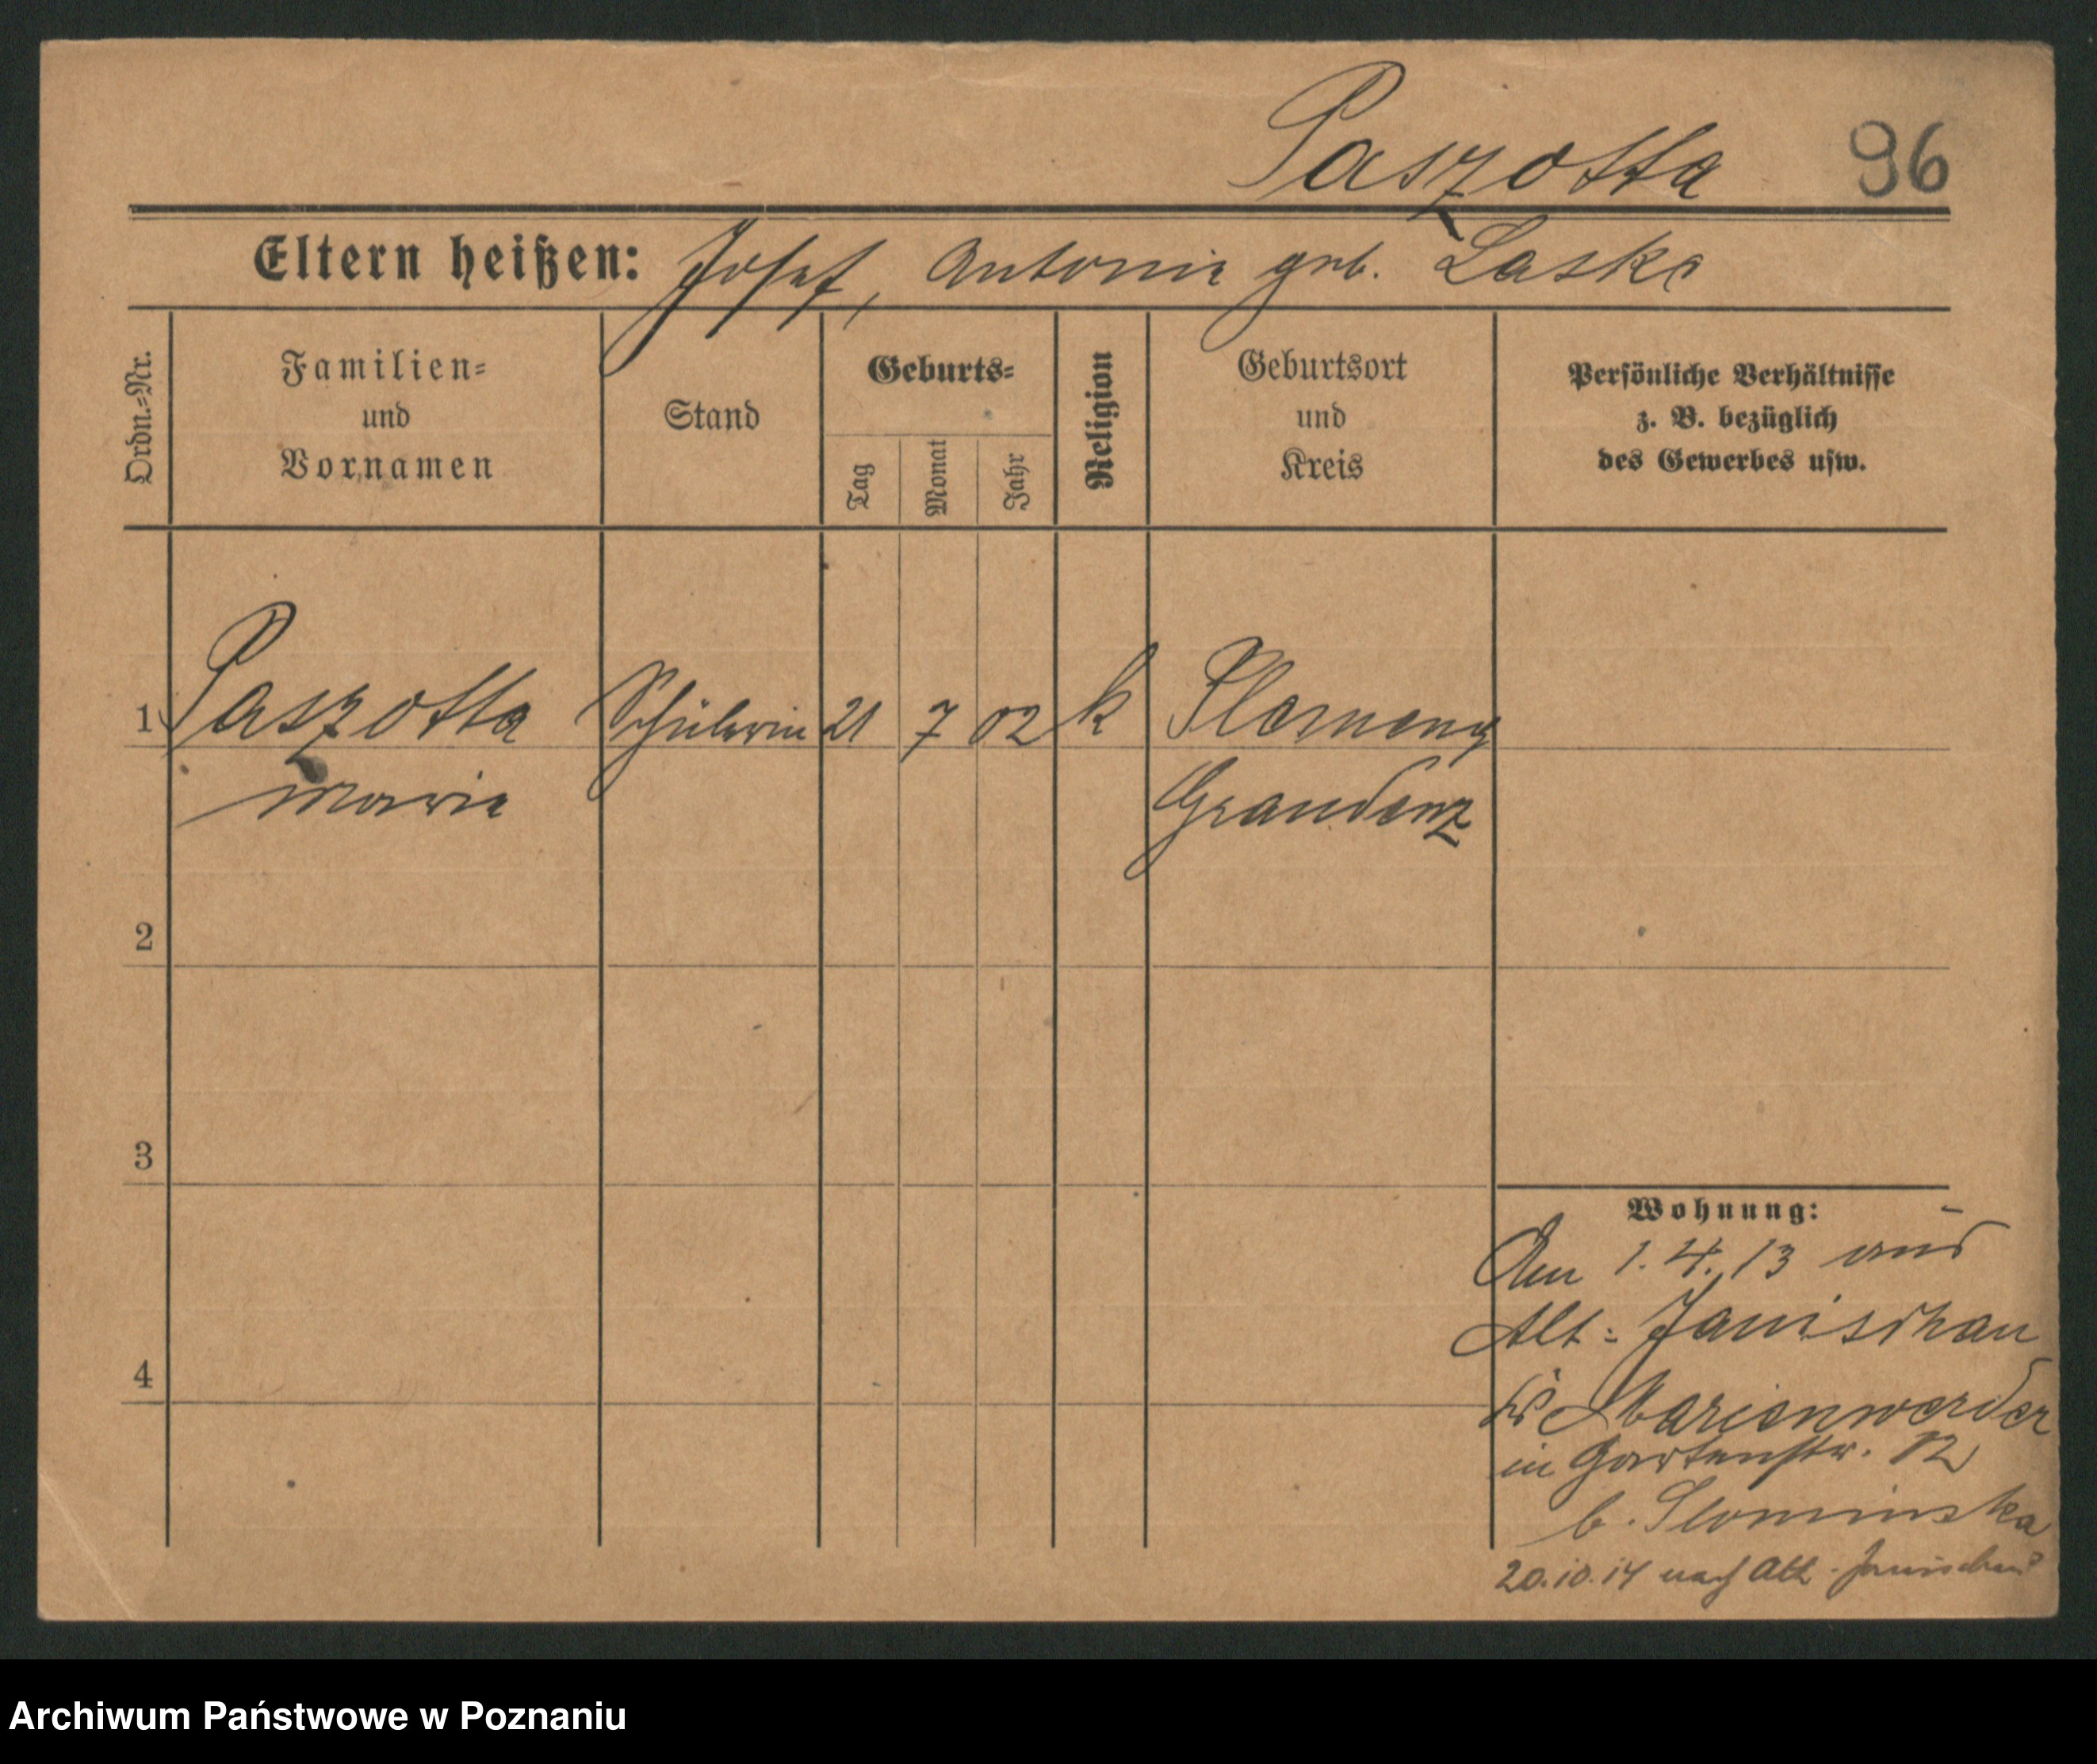 Paszotta 96
Eltern heißen: Josef, Antonie geb. Laska
Ordn.-Nr.
Familien-
und
Vornamen
Stand
Geburts-
Tag
Monat
Jahr
Religion
Geburtsort
und
Kreis
Persönliche Verhältnisse
z. B. bezüglich
des Gewerbes usw.
1 Paszotta Schülerin 21 7 02 k
Marie Graudenz
2
3
4
Wohnung:
Am 1.4.13 aus
Alt-Janischau
Marienwerder
in Gartenstr. 12
b. Slominska
20.10.14 nach Alt-Janischau
Archiwum Państwowe w Poznaniu